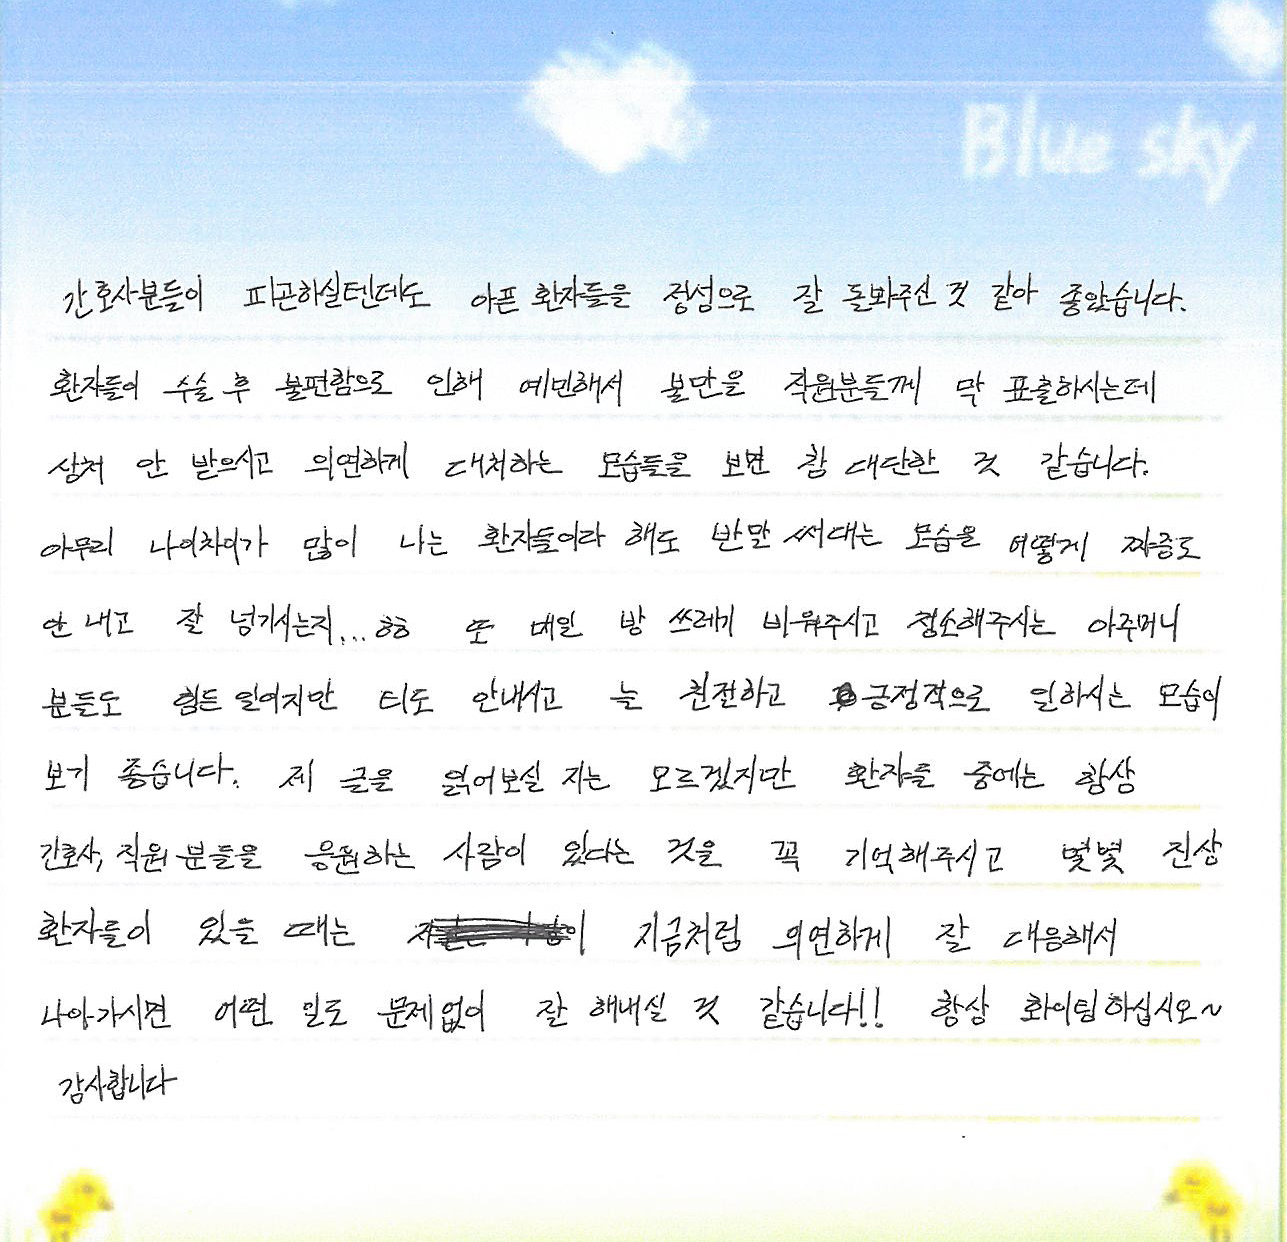 Blue sky
간호사분들이 피곤하실텐데도 아픈 환자들을 정성으로 잘 돌봐주신 것 같아 좋았습니다.
환자들이 수술 후 불편함으로 인해 예민해서 불만을 직원분들께 막 표출하시는데
상처 안 받으시고 의연하게 대처하는 모습들을 보면 참 대단한 것 같습니다.
아무리 나이차이가 많이 나는 환자들이라 해도 반말 써대는 모습을 어떻게 짜증도
안 내고 잘 넘기시는지... ㅎㅎ 또 매일 방 쓰레기 비워주시고 청소해주시는 아주머니
분들도 힘든 일이지만 티도 안내시고 늘 친절하고 긍정적으로 일하시는 모습이
보기 좋습니다. 제 글을 읽어보실 지는 모르겠지만 환자들 중에는 항상
간호사, 직원 분들을 응원하는 사람이 있다는 것을 꼭 기억해주시고 몇몇 진상
환자들이 있을 때는 지금처럼 의연하게 잘 대응해서
나아가시면 어떤 일도 문제없이 잘 해내실 것 같습니다!! 항상 화이팅하십시오~
감사합니다